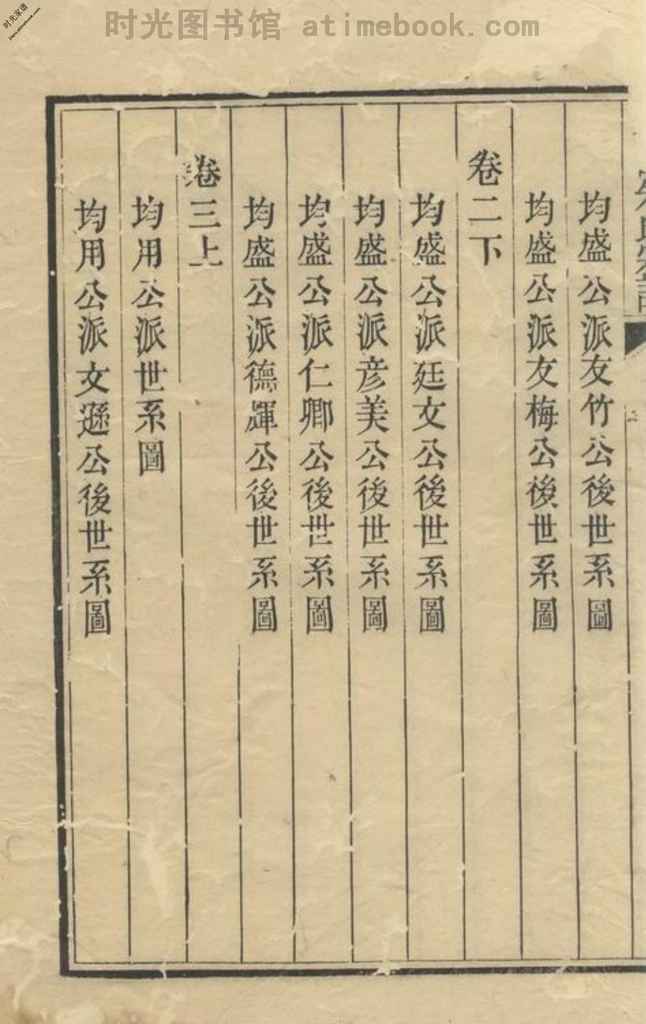 时光图书馆 atimebook.com
时光家谱
均盛公派友竹公後世系圖
均盛公派友梅公後世系圖
卷二下
均盛公派廷文公後世系圖
均盛公派彦美公後世系圖
均盛公派仁卿公後世系圖
均盛公派德諢公後世系圖
卷三上
均用公派世系圖
均用公派文遜公後世系圖